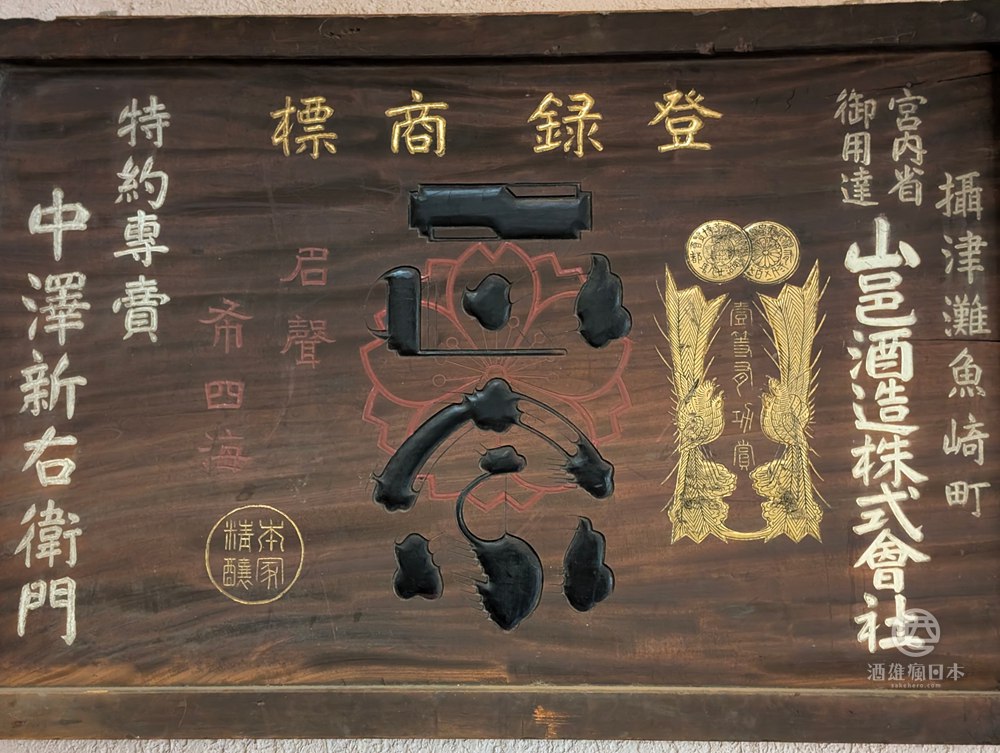 登録商標
攝津灘魚崎町
宮内省
御用達
山邑酒造株式會社
壹等有功賞
正宗
名聲
布四海
本家
精釀
特約專賣
中澤新右衛門
酒雄瘋日本
sakehero.com